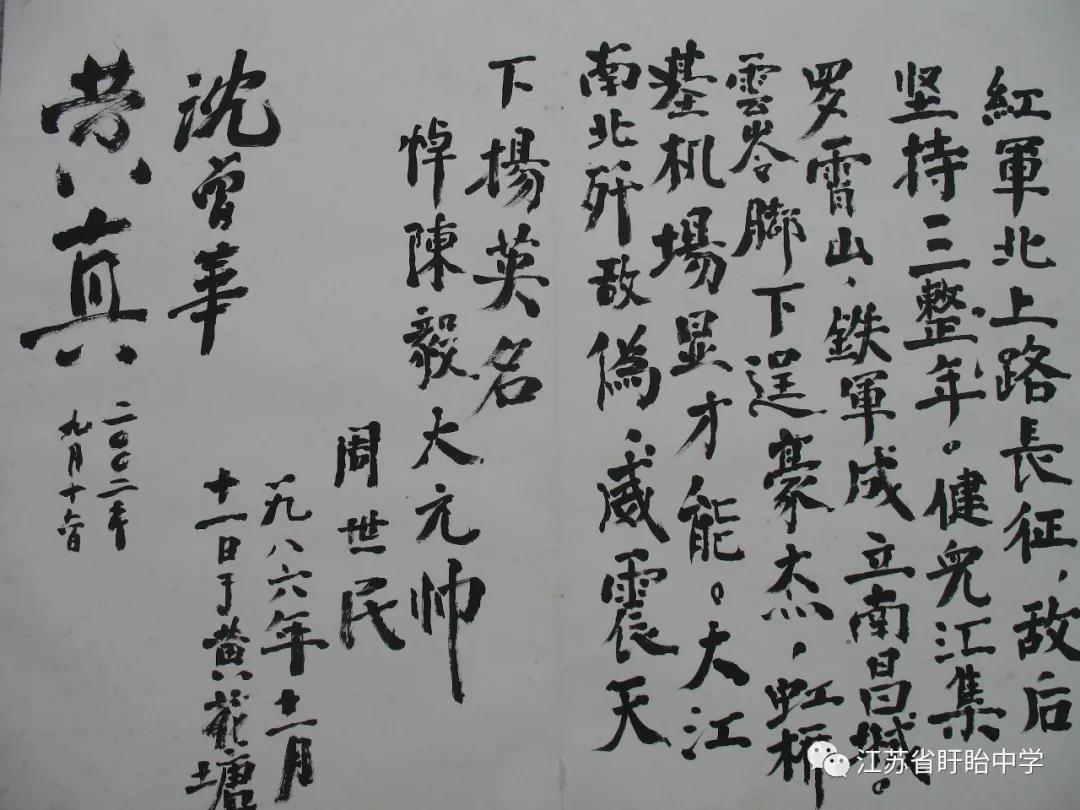 紅軍北上路長征，敌后
坚持三整年。健兒江集
罗霄山，鉄軍成立南昌城。
雲岺脚下逞豪杰，虹桥
基机場显才能。大江
南北歼敌偽，威震天
下揚英名
悼陳毅大元帅
周世民
一九八六年十一月
十一日于黄花塘
沈曾華
黄真
二〇〇二年
九月十六日
江苏省盱眙中学